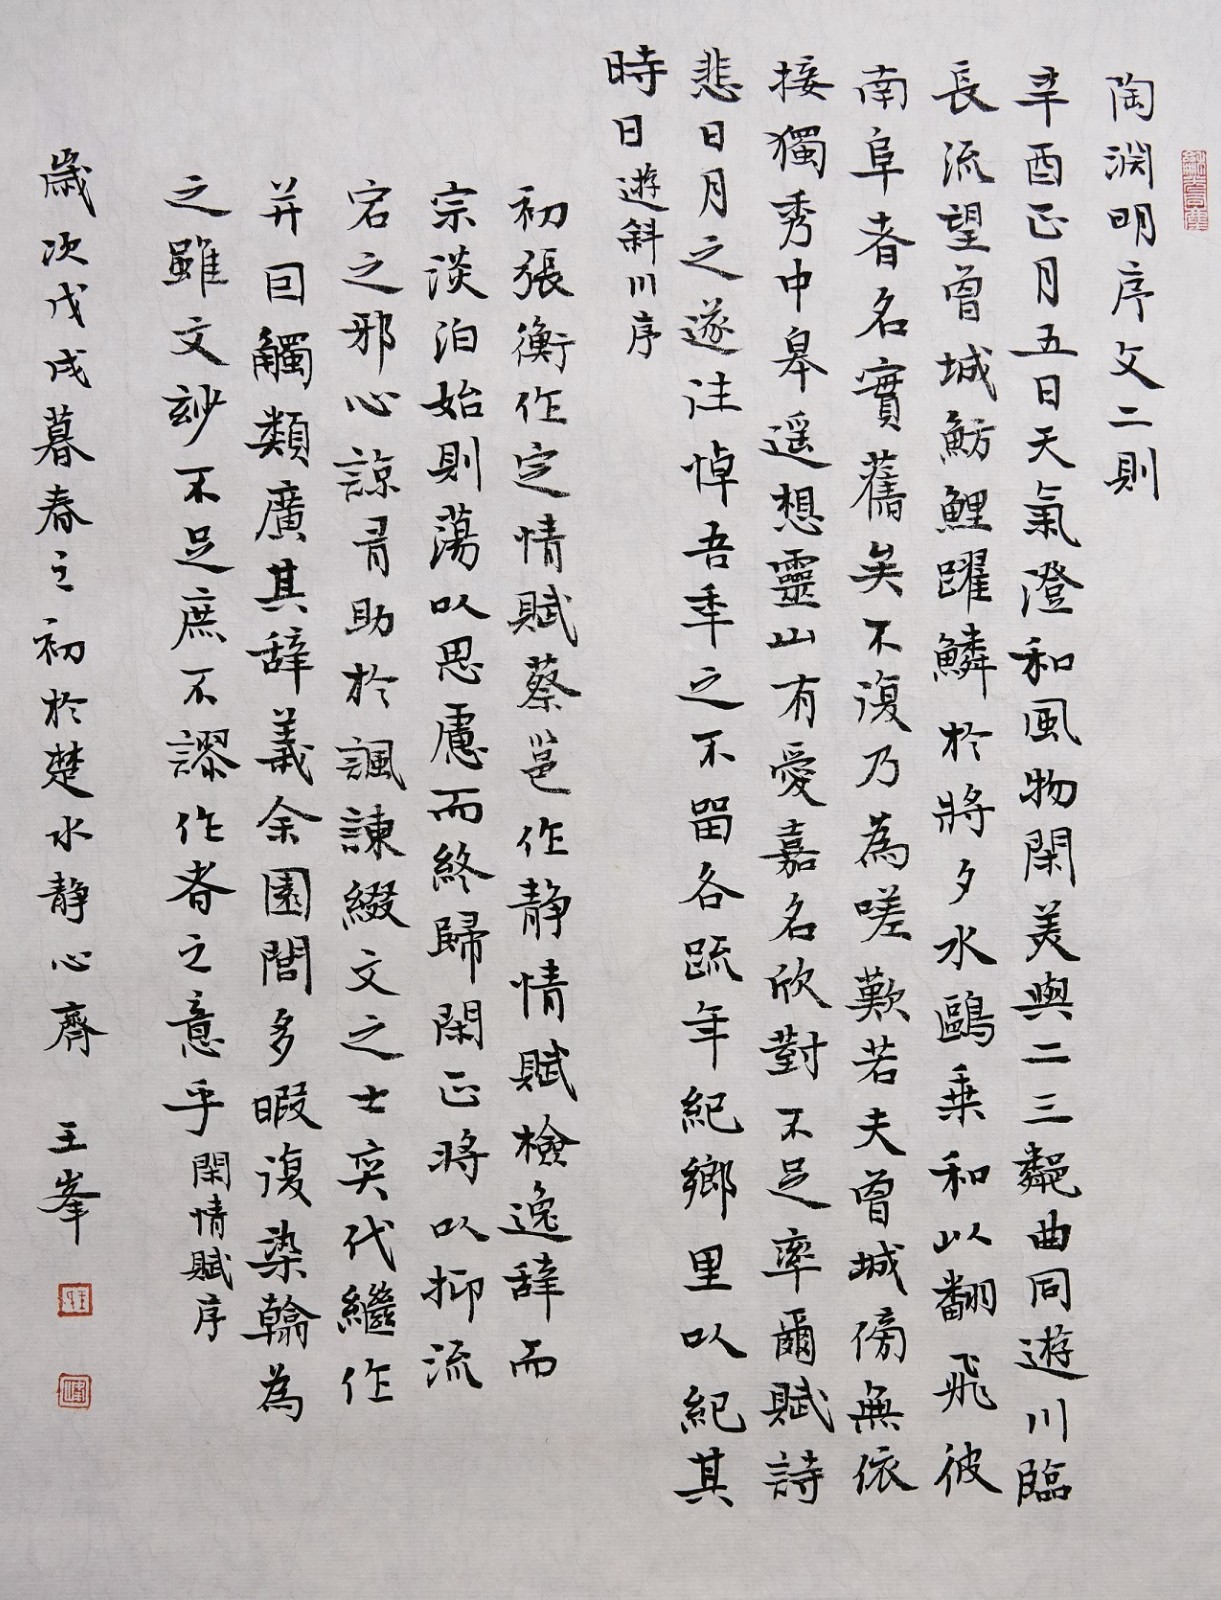 陶淵明序文二則
辛酉正月五日天氣澄和風物閑美與二三鄰曲同遊川臨
長流望曾城魴鯉躍鱗於將夕水鷗乗和以翻飛彼
南阜者名實舊矣不復乃為嗟歎若夫曾城傍無依
接獨秀中皐遥想靈山有愛嘉名欣對不足率爾賦詩
悲日月之遂往悼吾年之不留各疏年紀鄉里以紀其
時日遊斜川序
初張衡作定情賦蔡邕作静情賦檢逸辞而
宗淡泊始則蕩以思慮而終歸閑正將以抑流
宕之邪心諒有助於諷諫綴文之士奕代繼作
并因觸類廣其辞義余園閭多暇復染翰為
之雖文玅不足庶不謬作者之意乎閑情賦序
歳次戊戌暮春之初於楚水静心齋 王峯